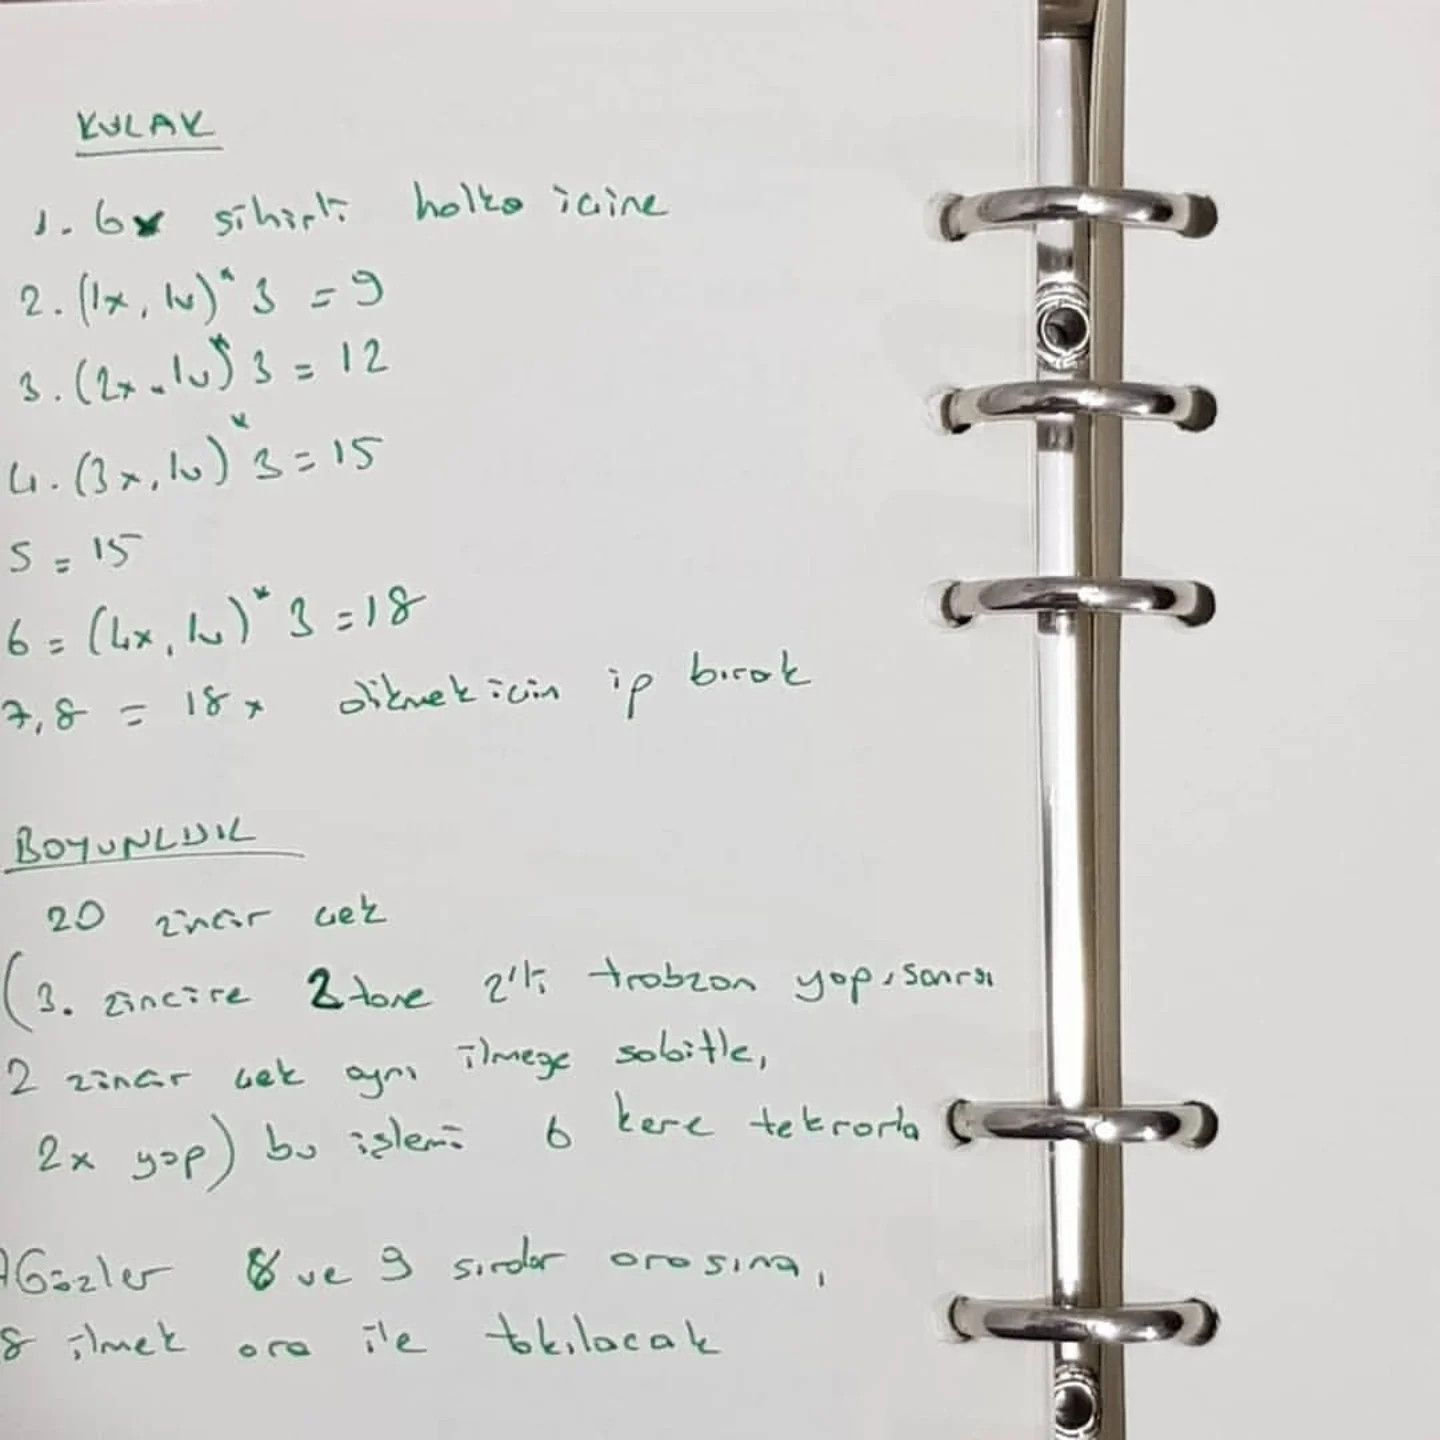 KULAK
1. 6x sihirli halka içine
2. (1x, 1v)* 3 = 9
3. (2x, 1v)* 3 = 12
4. (3x, 1v)* 3 = 15
5 = 15
6 = (4x, 1v)* 3 = 18
7,8 = 18x dikmek için ip bırak
BOYUNLUK
20 zincir çek
(3. zincire 2 tane 2'li trabzan yap, sonra
2 zincir çek aynı ilmeğe sabitle,
2x yap) bu işlemi 6 kere tekrarla
Gözler 8 ve 9 sıralar arasına,
8 ilmek ara ile takılacak